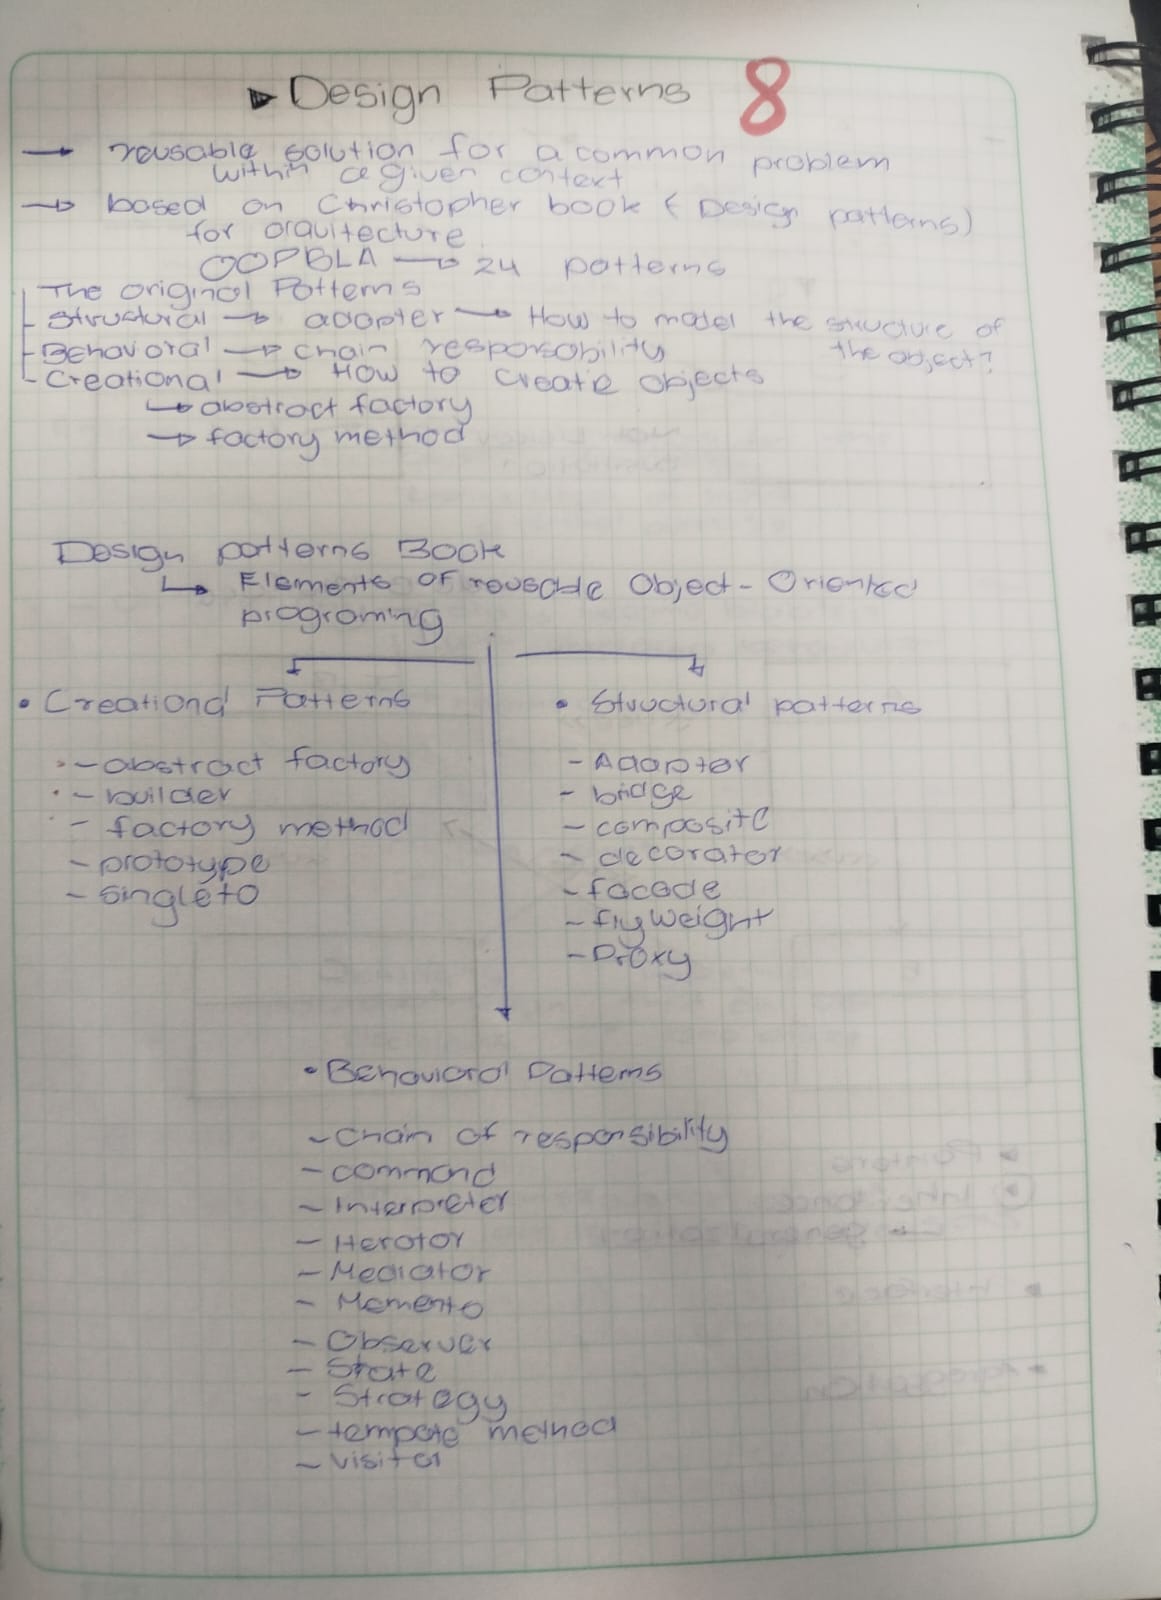 Design Patterns 8
→ reusable solution for a common problem
within a given context
→ based on Christopher book (Design patterns)
for arquitecture
OOPSLA → 24 patterns
The original Patterns
- Structural → adapter → How to model the structure of
the object?
- Behavioral → chain responsability
- Creational → How to create objects
→ abstract factory
→ factory method
Design patterns Book
→ Elements of reusable Object-Oriented
programing
• Creational Patterns
- abstract factory
- builder
- factory method
- prototype
- singleto
• Structural patterns
- Adapter
- bridge
- composite
- decorator
- facade
- flyweight
- Proxy
• Behavioral Patterns
- Chain of responsibility
- command
- Interpreter
- Iterator
- Mediator
- Memento
- Observer
- State
- Strategy
- tempate method
- visitor